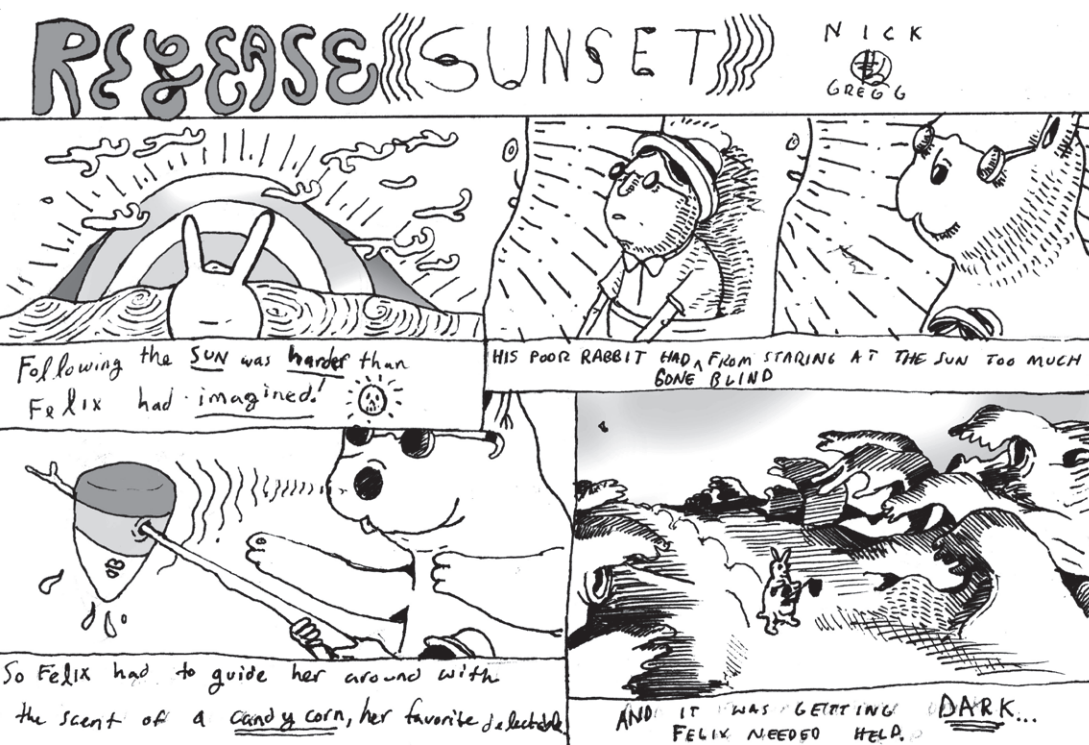 RELEASE SUNSET
NICK
GREGG
Following the SUN was harder than
Felix had imagined!
HIS POOR RABBIT HAD ^ FROM STARING AT THE SUN TOO MUCH
GONE BLIND
So Felix had to guide her around with
the scent of a candy corn, her favorite delectable
AND IT WAS GETTING DARK...
FELIX NEEDED HELP.